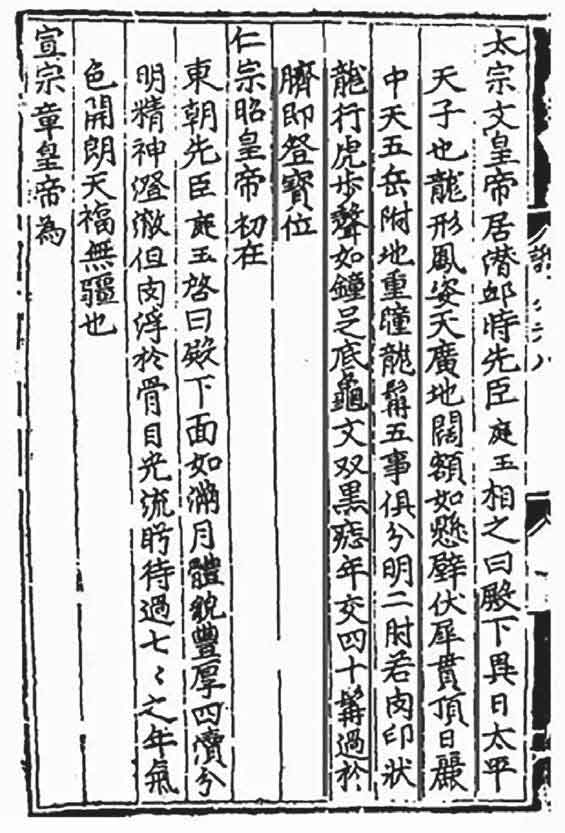 太宗文皇帝居潛邸時先臣庭玉相之曰殿下異日太平
天子也龍形鳳姿天廣地闊額如懸壁伏犀貫頂日麗
中天五岳附地重瞳龍髯五事俱分明二肘若肉印狀
龍行虎步聲如鐘足底龜文双黑痣年交四十髯過於
臍即登寶位
仁宗昭皇帝初在
東朝先臣庭玉啓曰殿下面如滿月體貌豐厚四瀆分
明精神澄澈但肉浮於骨目光流眄待過七〻之年氣
色開朗天福無疆也
宣宗章皇帝為